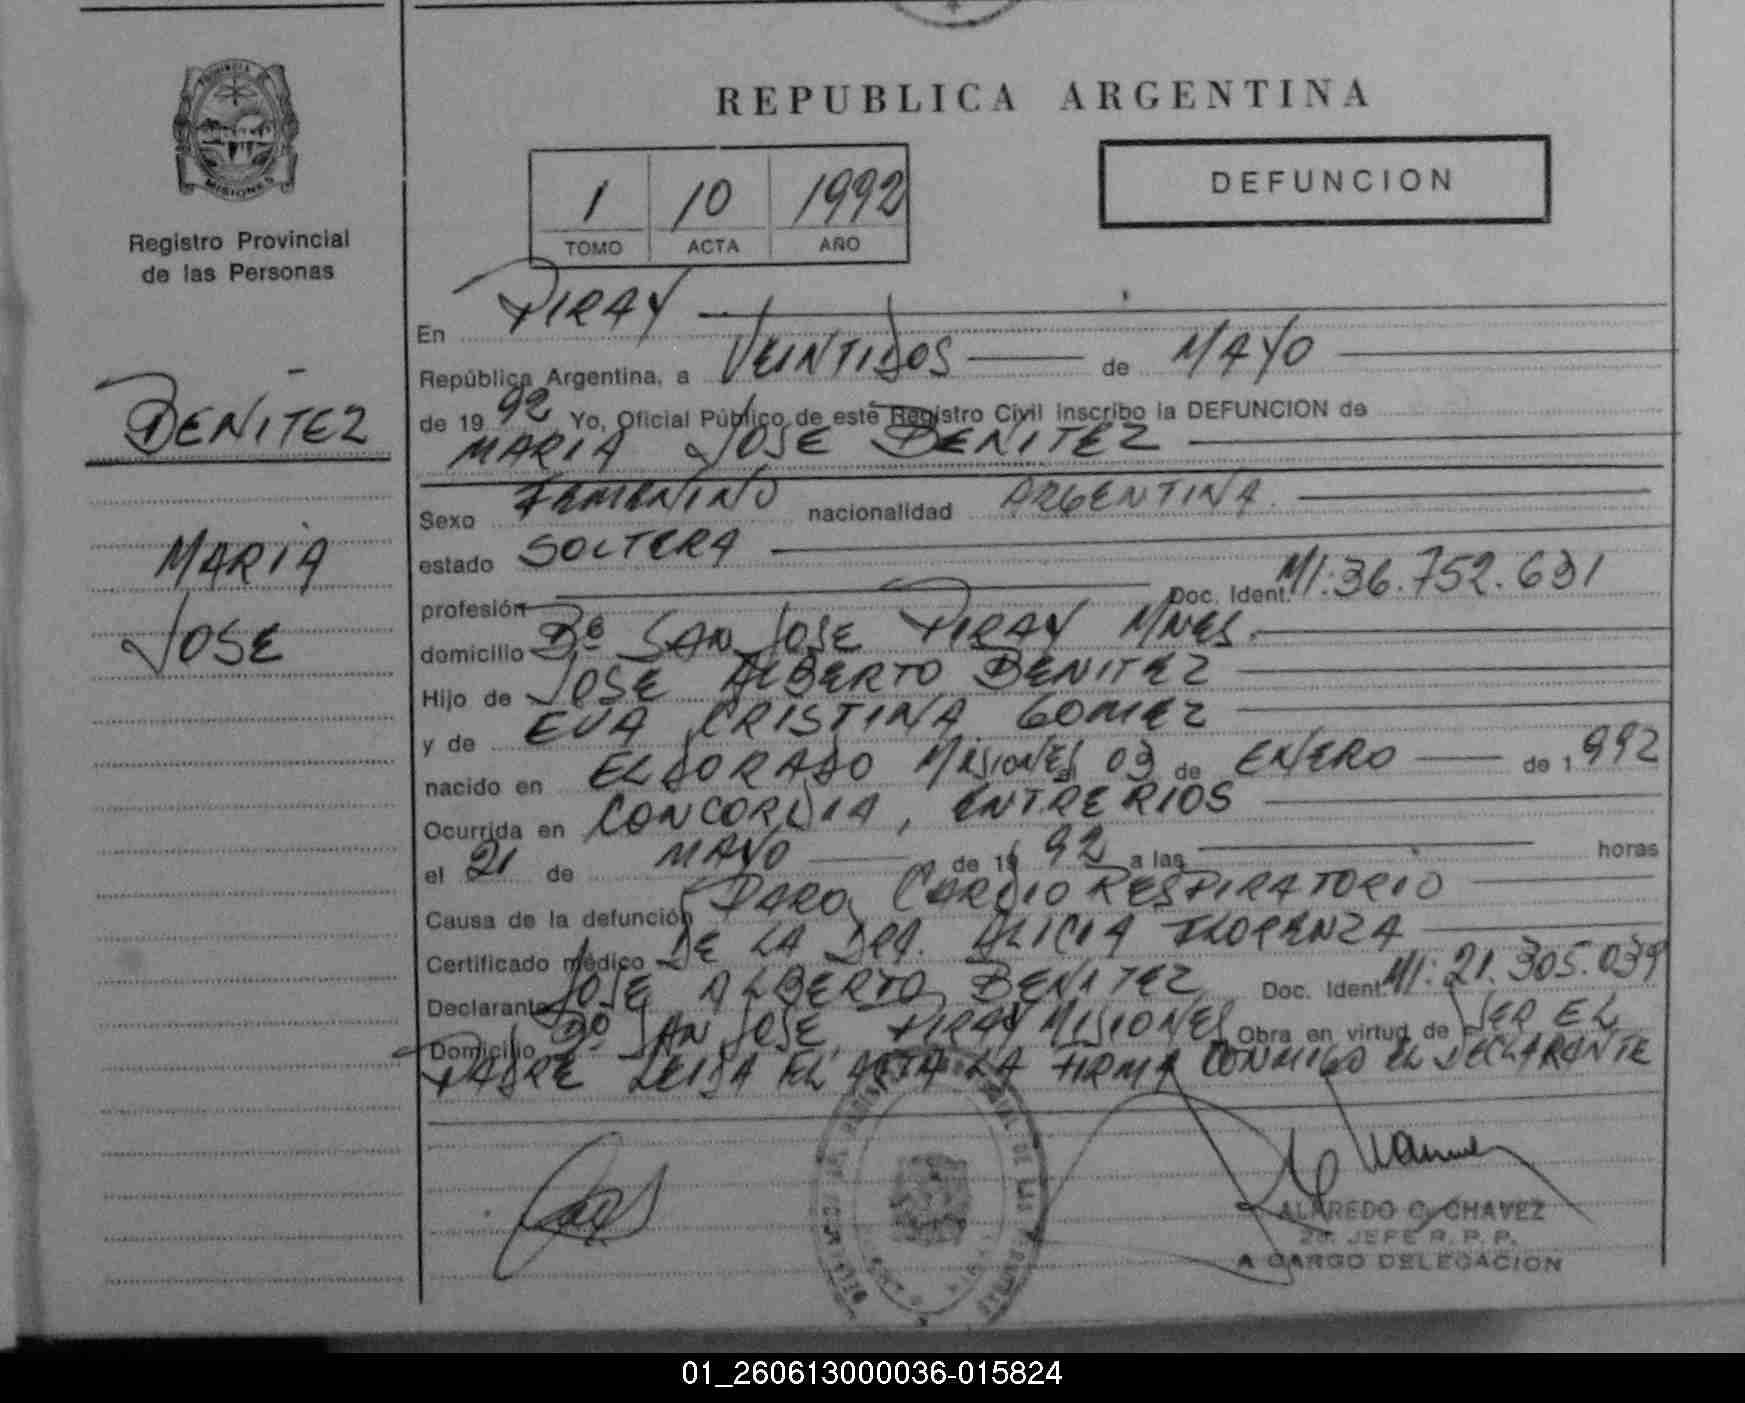 PROVINCIA DE
MISIONES
Registro Provincial
de las Personas
REPUBLICA ARGENTINA
DEFUNCION
1 10 1992
TOMO ACTA AÑO
BENITEZ
MARIA
JOSE
En PIRAY
República Argentina, a VEINTIDOS de MAYO
de 1992 Yo, Oficial Público de este Registro Civil inscribo la DEFUNCION de
MARIA JOSE BENITEZ
Sexo FEMENINO nacionalidad ARGENTINA.
estado SOLTERA
profesión Doc. Ident. MI: 36.752.631
domicilio Bº SAN JOSE PIRAY MNES.
Hijo de JOSE ALBERTO BENITEZ
y de EVA CRISTINA GOMEZ
nacido en ELDORADO MISIONES el 03 de ENERO de 1992
Ocurrida en CONCORDIA, ENTRE RIOS
el 21 de MAYO de 1992 a las horas
Causa de la defunción PARO CARDIO RESPIRATORIO
Certificado médico DE LA DRA. ALICIA FLORENZA
Declarante JOSE ALBERTO BENITEZ Doc. Ident. MI: 21.305.039
Domicilio Bº SAN JOSE PIRAY MISIONES Obra en virtud de SER EL
PADRE LEIDA EL ACTA LA FIRMA CONMIGO EL DECLARANTE
ALFREDO C. CHAVEZ
2º JEFE R. P. P.
A CARGO DELEGACION
01_260613000036-015824